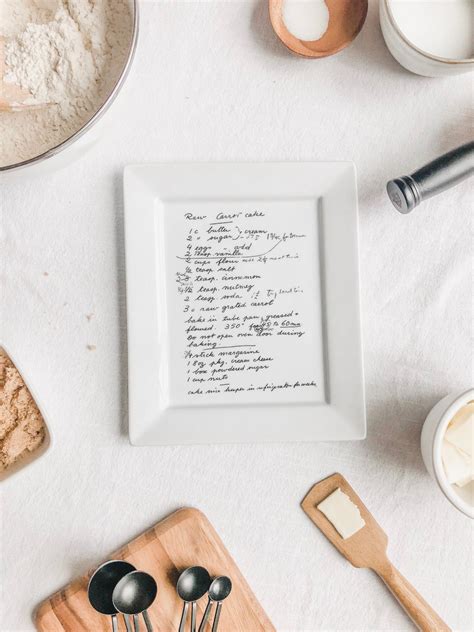 Raw Carrot cake
1 c butter } cream
2 " sugar
4 eggs " add
2 teasp vanilla
2 cups flour
1/2 teasp salt
teasp. cinnamon
1/2 teasp. nutmeg
2 teasp. soda
3 c raw grated carrot
bake in tube pan, greased &
floured. 350° for 60 min
Do not open oven door during
baking.
stick margarine
1 8oz pkg. cream cheese
1 box powdered sugar
1 cup nuts
cake mix keeps in refrigerator for weeks